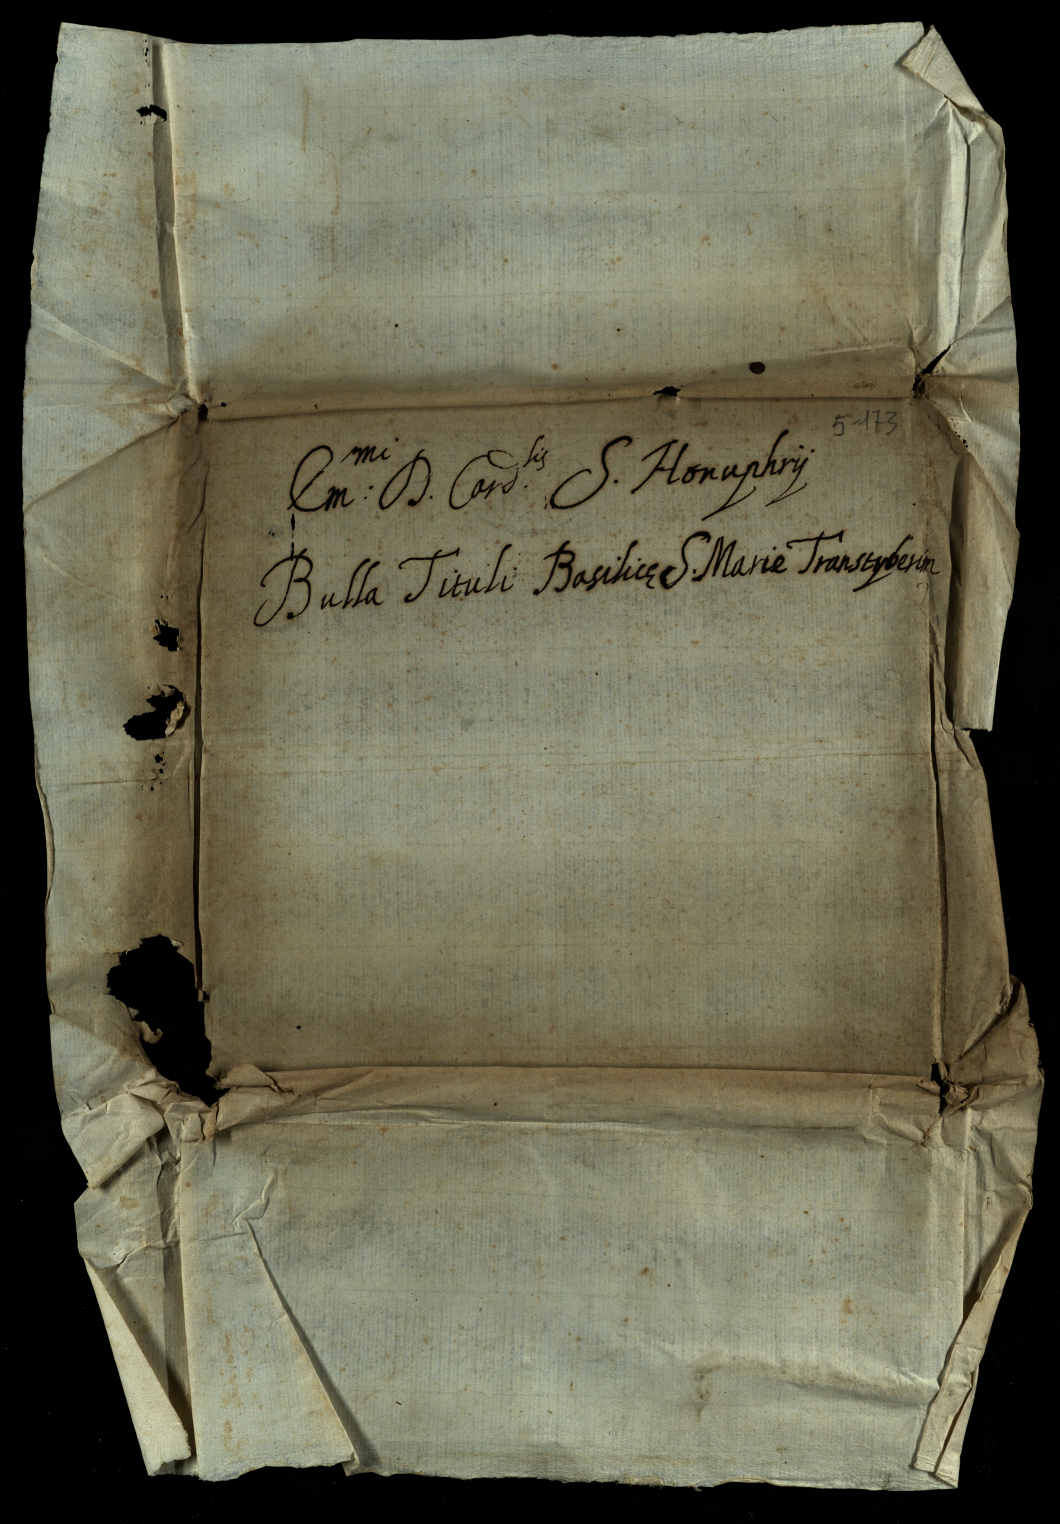 5-173
Em:mi D. Card.lis S. Honuphrij
Bulla Tituli Basilicę S. Marię Transtyberim